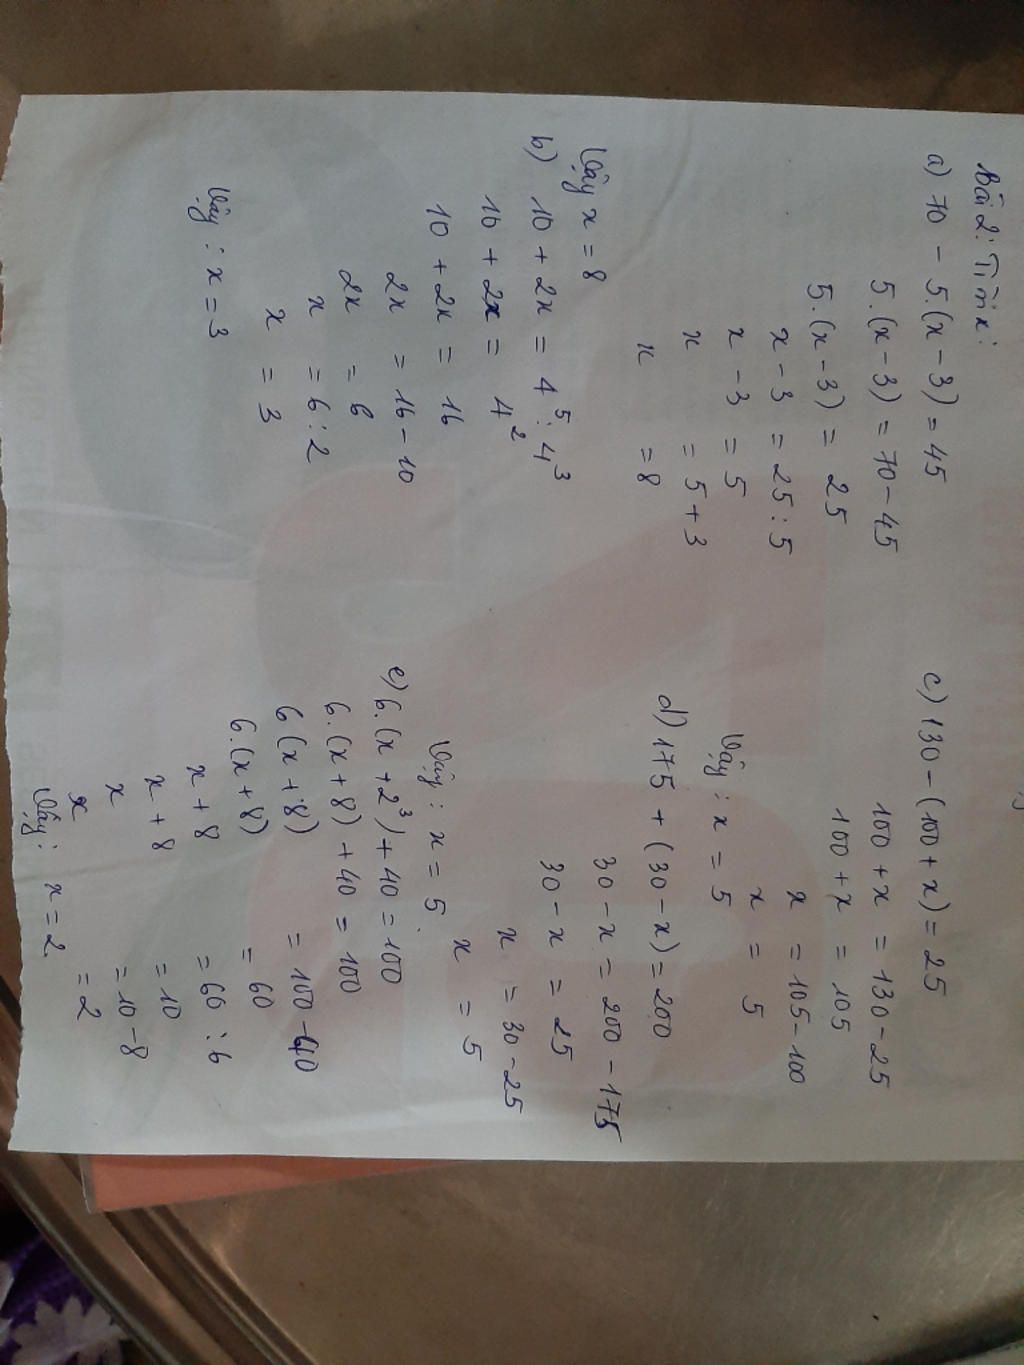 Bài 2: Tìm x:
a) 70 - 5.(x - 3) = 45
5.(x - 3) = 70 - 45
5.(x - 3) = 25
x - 3 = 25 : 5
x - 3 = 5
x = 5 + 3
x = 8
Vậy x = 8
b) 10 + 2x = 4⁵ : 4³
10 + 2x = 4²
10 + 2x = 16
2x = 16 - 10
2x = 6
x = 6 : 2
x = 3
Vậy : x = 3
c) 130 - (100 + x) = 25
100 + x = 130 - 25
100 + x = 105
x = 105 - 100
x = 5
Vậy : x = 5
d) 175 + (30 - x) = 200
30 - x = 200 - 175
30 - x = 25
x = 30 - 25
x = 5
Vậy : x = 5.
e) 6.(x + 2³) + 40 = 100
6.(x + 8) + 40 = 100
6 (x + 8) = 100 - 40
6.(x + 8) = 60
x + 8 = 60 : 6
x + 8 = 10
x = 10 - 8
x = 2
Vậy : x = 2